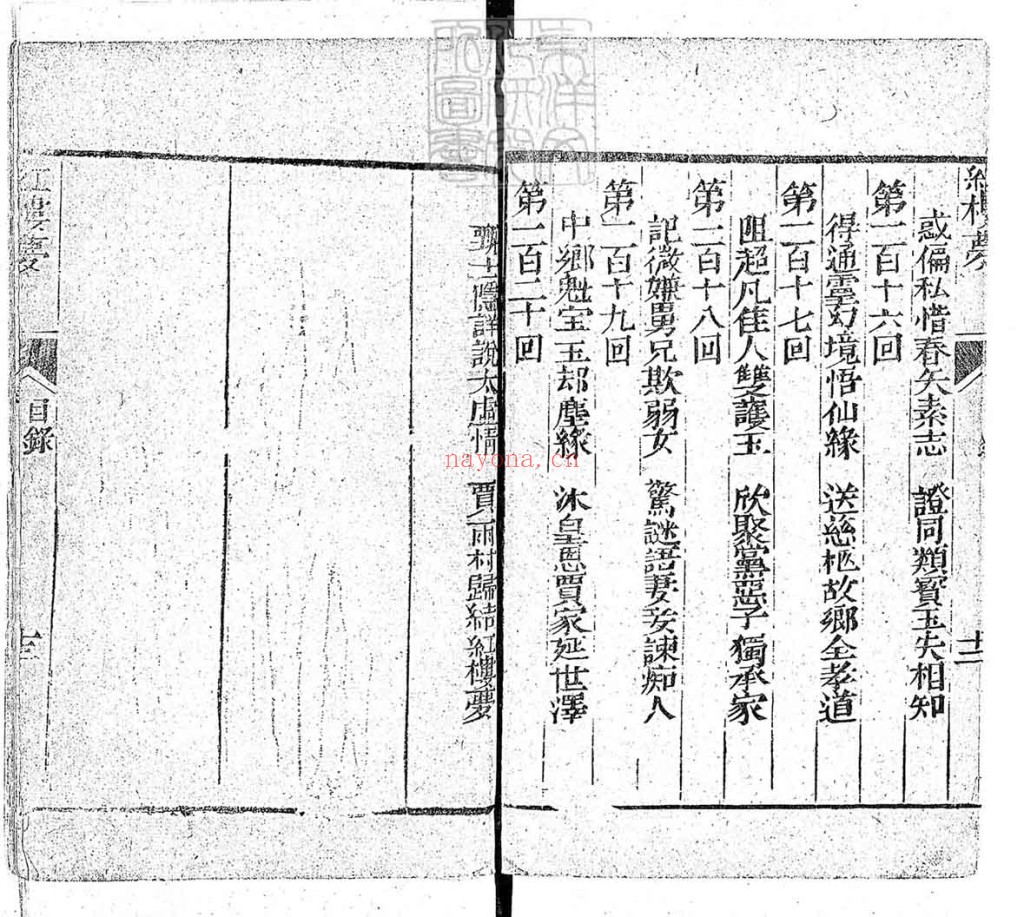 紅樓夢
十二
惑偏私惜春矢素志　證同類寳玉失相知
第一百十六回
得通靈幻境悟仙緣　送慈柩故鄉全孝道
第一百十七回
阻超凡佳人雙護玉　欣聚黨惡子獨承家
第一百十八回
記微嫌舅兄欺弱女　驚謎語妻妾諫痴人
第一百十九回
中鄉魁宝玉却塵緣　沐皇恩賈家延世澤
第一百二十回
甄士隱詳說太虛情　賈雨村歸結紅樓夢
紅樓夢
目錄
nayona.cn